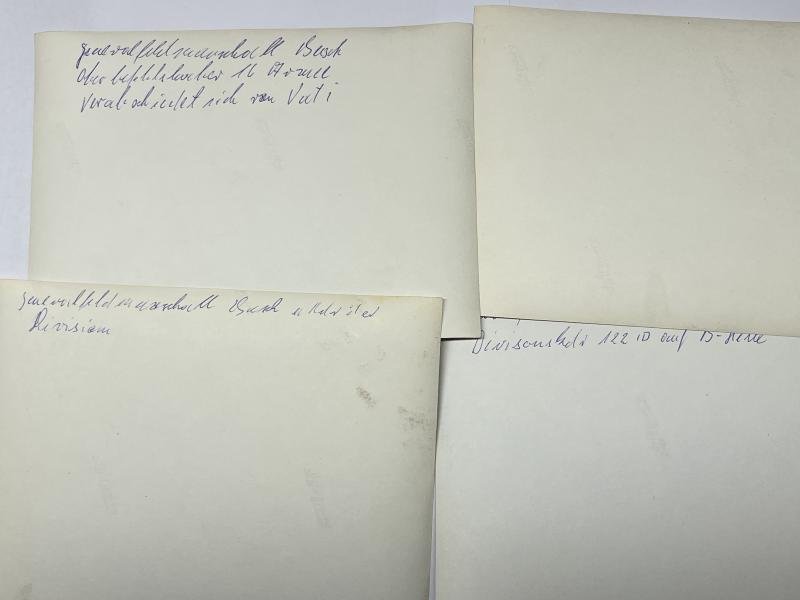 Generalfeldmarschall Busch
Oberbefehlshaber 16 Armee
verabschiedet sich von
Generalfeldmarschall Busch der
Division
122 ID auf